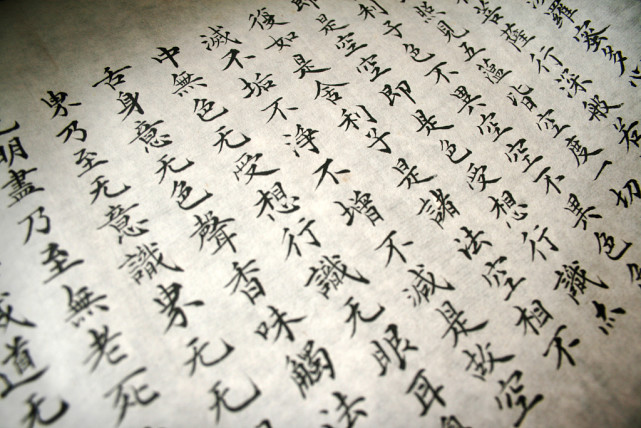 羅蜜多
菩薩行深般若
照見五蘊皆空度一切
利子色不異空空不異色色
即是空空即是色受想行識亦
後如是舍利子是諸法空相不
滅不垢不淨不增不減是故空
中無色无受想行識无眼耳
舌身意无色聲香味觸法
界乃至无意識界无无
明盡乃至無老死
道无